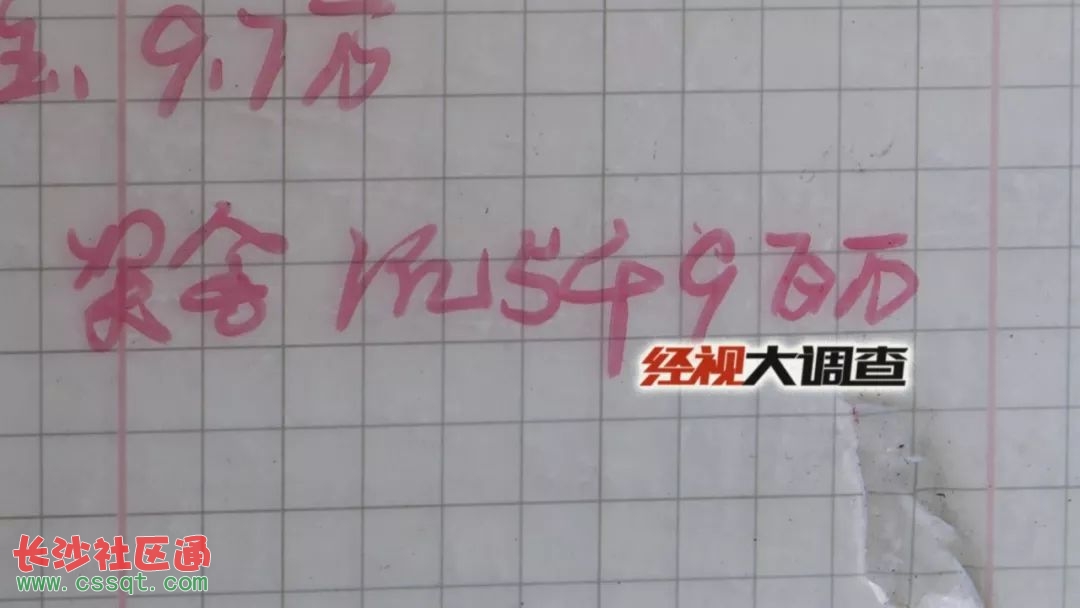 宝、9.7万
奖金 1亿5千9百万
经视大调查
长沙社区通
www.cssqt.com